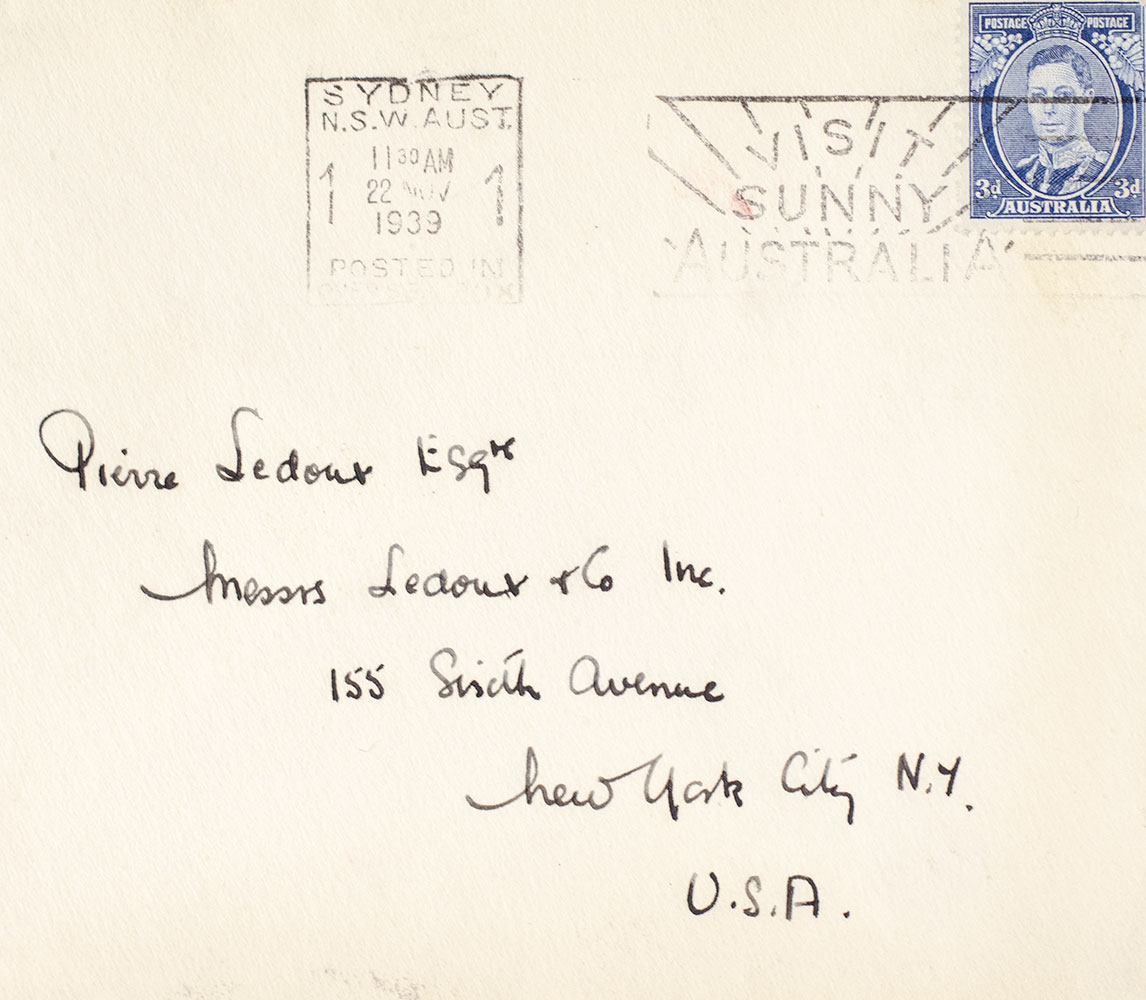 POSTAGE POSTAGE
3d 3d
AUSTRALIA
SYDNEY
N.S.W. AUST.
11 30 AM
1 22 NOV 1
1939
POSTED IN
VISIT
SUNNY
AUSTRALIA
Pierre Ledoux Esqre
Messrs Ledoux & Co Inc.
155 Sixth Avenue
New York City N.Y.
U.S.A.